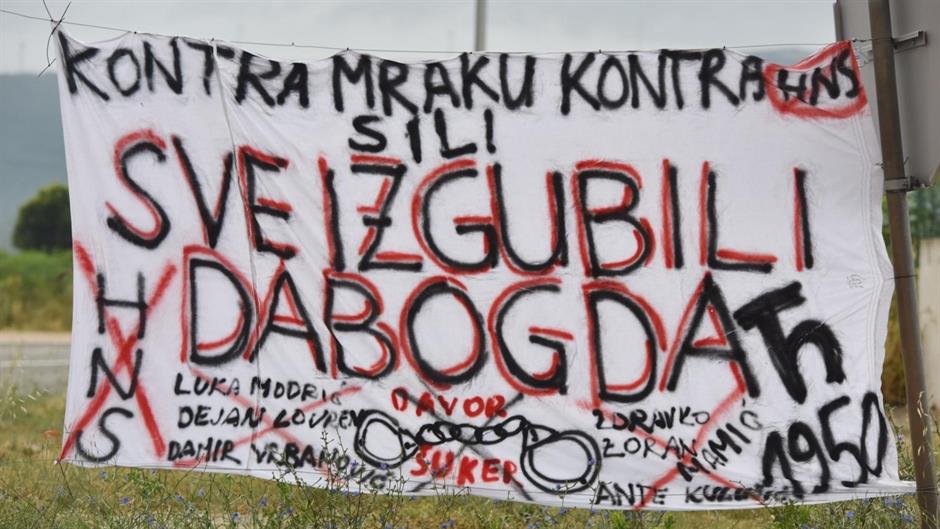 KONTRA MRAKU KONTRA HNS
SILI
SVE IZGUBILI
DABOGDA
Th
1950
HNS
LUKA MODRIĆ
DEJAN LOVREN
DAMIR VRBANOVIĆ
DAVOR
ŠUKER
ZDRAVKO
ZORAN
MAMIĆ
ANTE